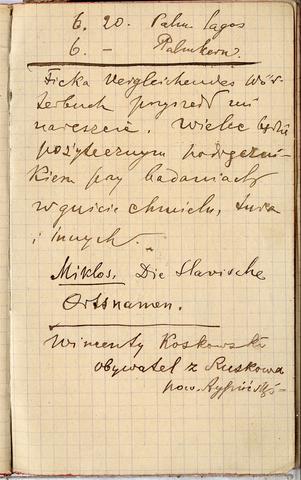 6. 20. Palm. lagos
6. — Palmkern.
Ficka Vergleichendes Wör-
terbuch przyszedł mi
nareszcie. Wielce będzie
pożytecznym podręczni-
kiem przy badaniach
w guście chmielu,
i innych.
Miklos. Die Slavische
Ortsnamen.
Wincenty Koskowski
obywatel z Ruskowa
pow.